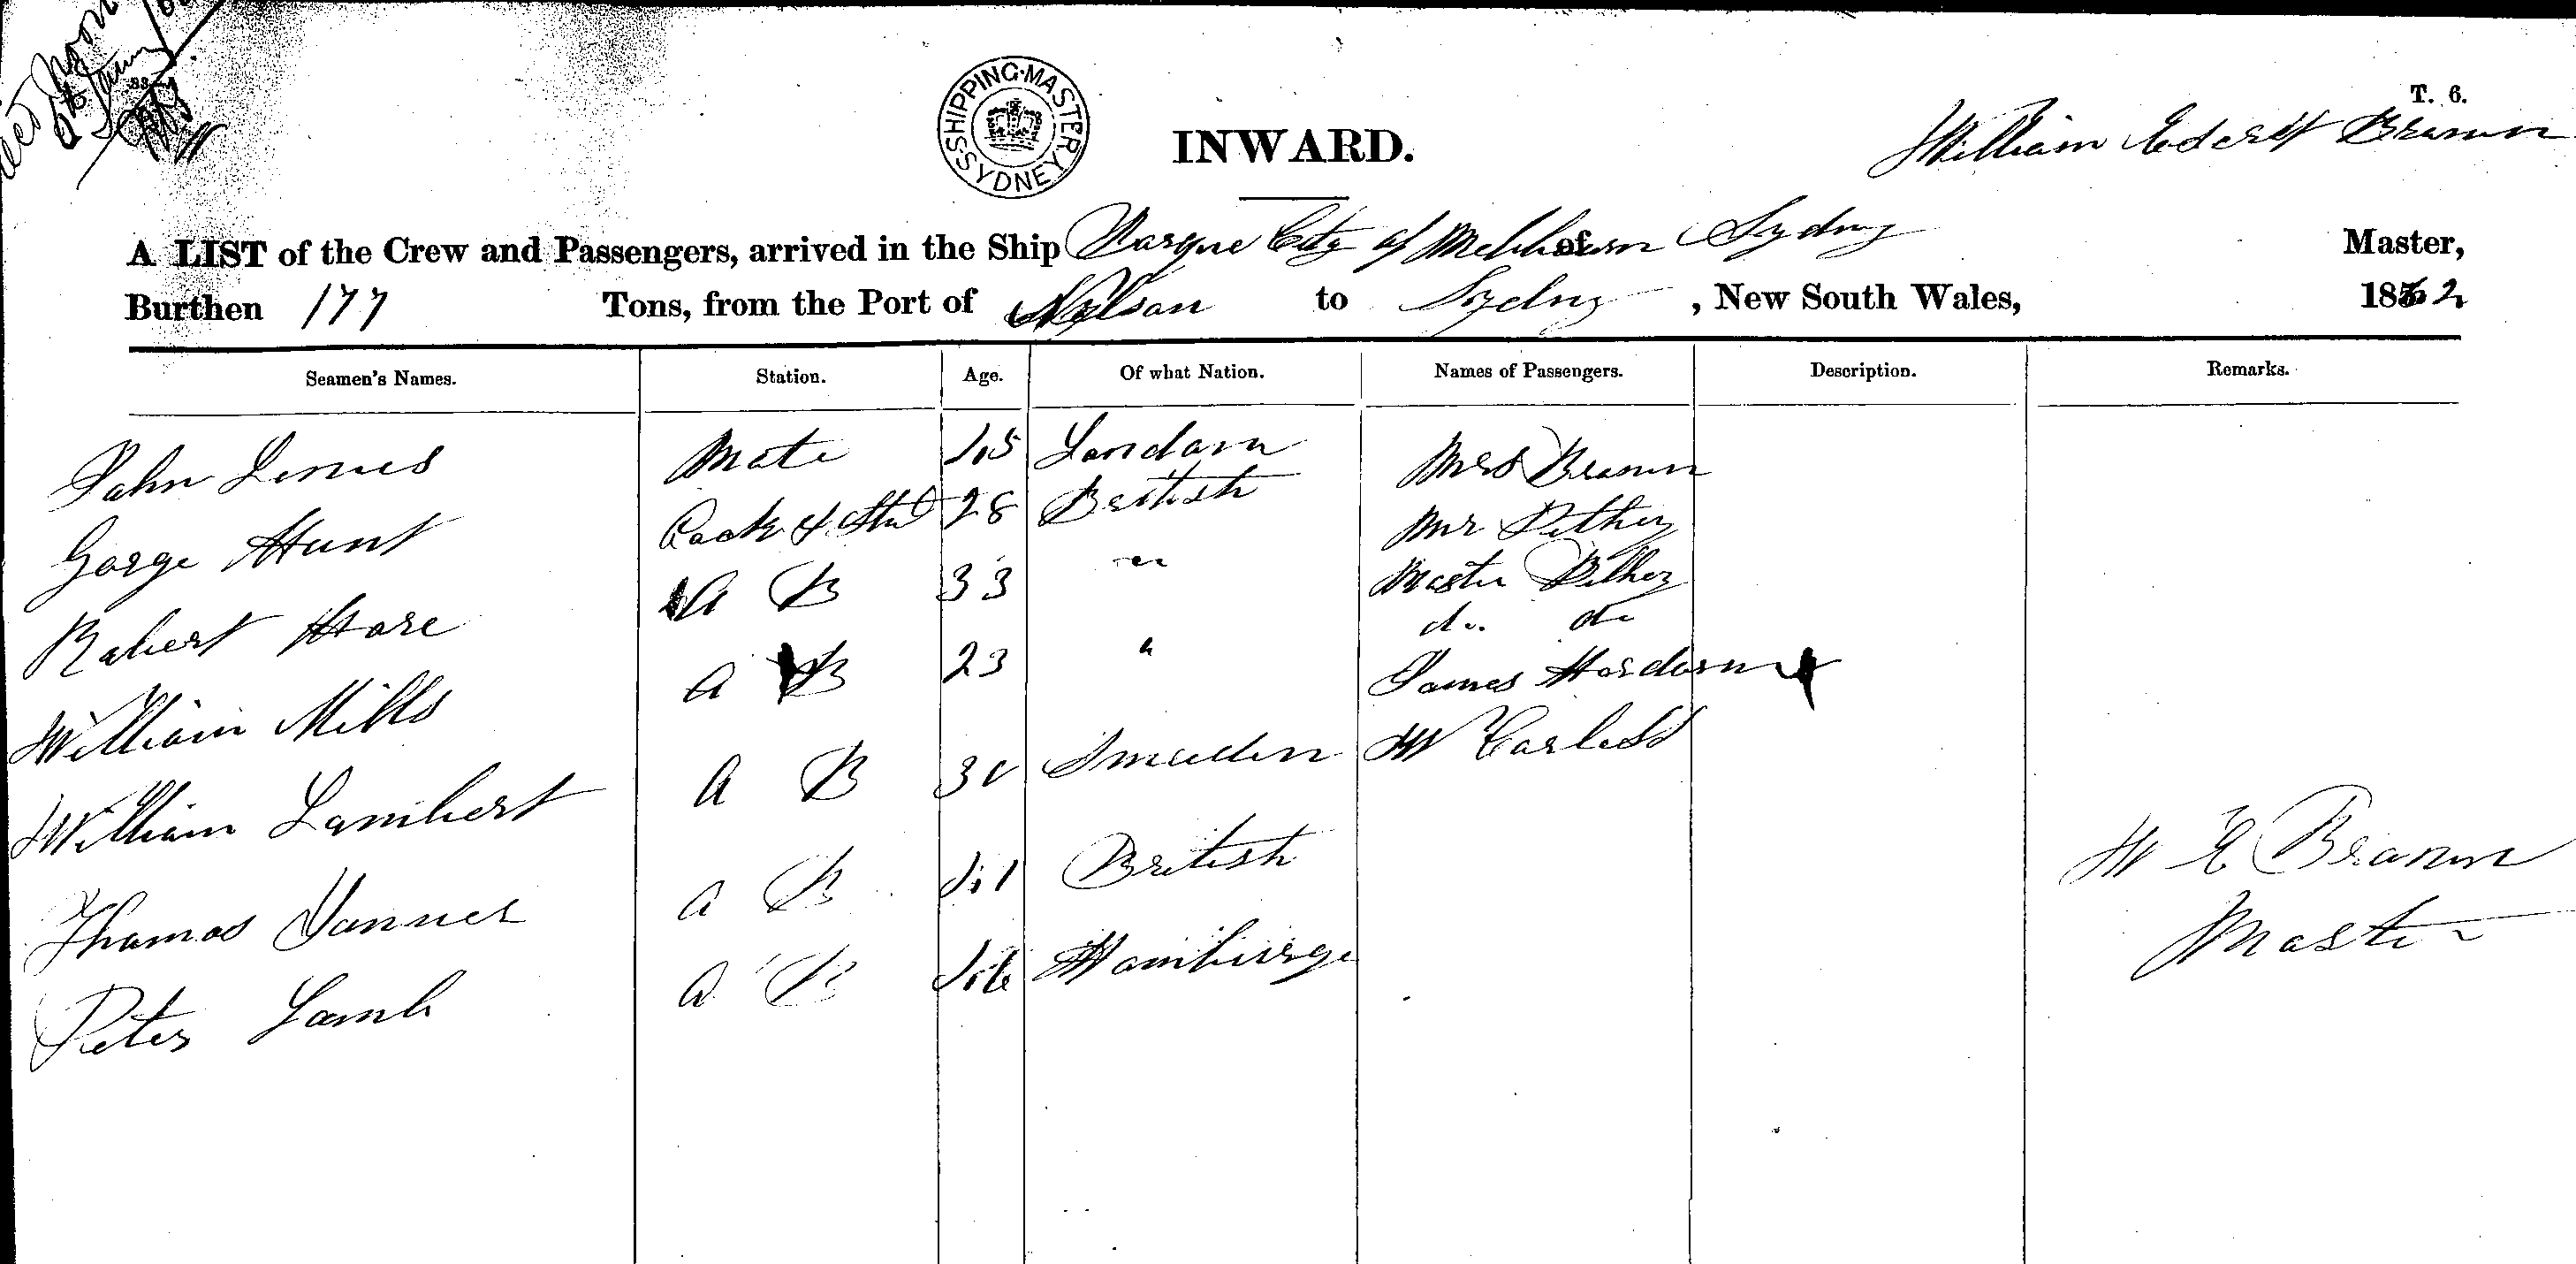 SHIPPING MASTER SYDNEY
INWARD.
T. 6.
William Brown
A LIST of the Crew and Passengers, arrived in the Ship Barque City of Melbourn of Sydny Master,
Burthen 177 Tons, from the Port of Nelson to Sydny, New South Wales, 1862
Seamen's Names. Station. Age. Of what Nation. Names of Passengers. Description. Remarks.
John Mate Londorn Mrs Brown
Gorge Hunt Cook & Stwd 28 British Mr Pethey
Robert Hore A B 33 " Master Pethey
do. do
William Mills A B 23 " James
William Lambert A B 30 W
Thomas A B British
Peter Lamb A B Hamburge
W E Brown
Master